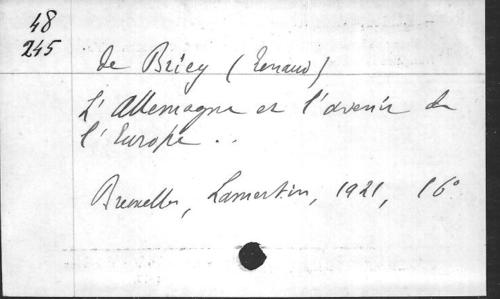 48
245
de Briey (Renaud)
L'Allemagne et l'avenir de
l'Europe ..
Bruxelles, Lamertin, 1921, 16°